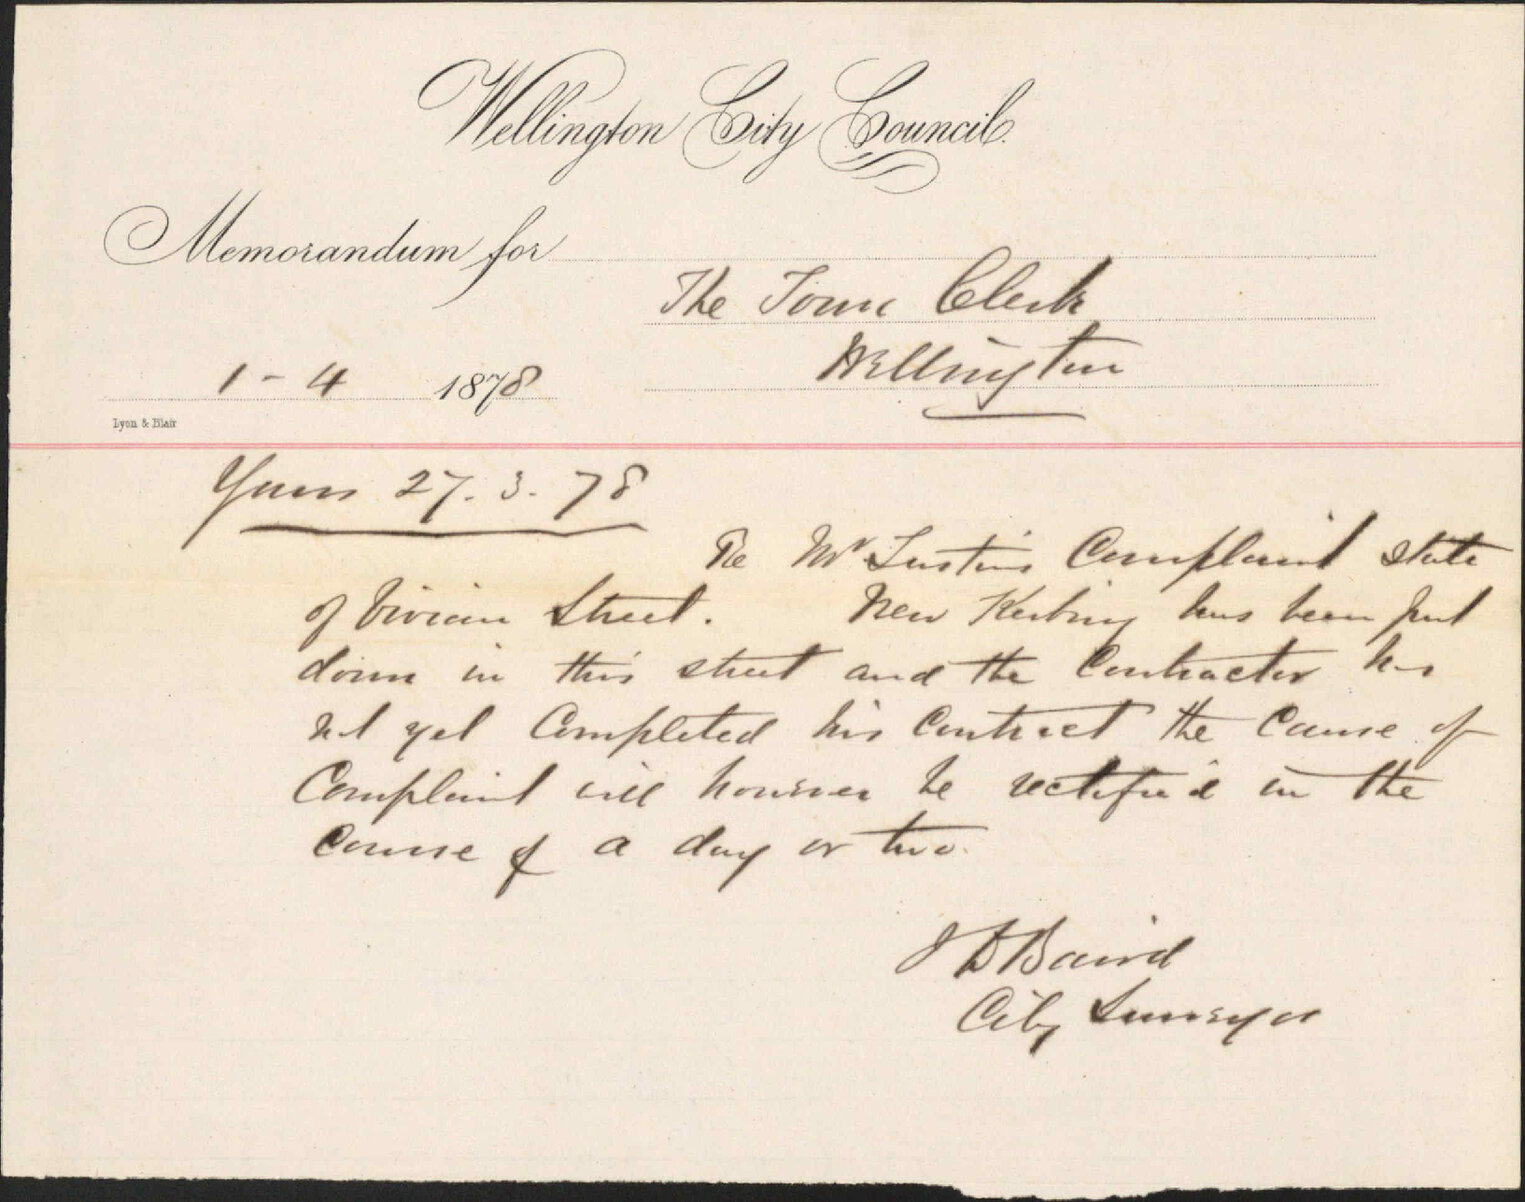 Wellington City Council.
Memorandum for
The Town Clerk
Wellington
1 - 4 1878
Lyon & Blair
Yours 27. 3. 78
Re Mr Complaint state
of Vivian Street. New Kerbing has been put
down in this street and the Contractor has
not yet Completed his Contract the Cause of
Complaint will however be rectified in the
Course of a day or two.
J D Baird
City Surveyor